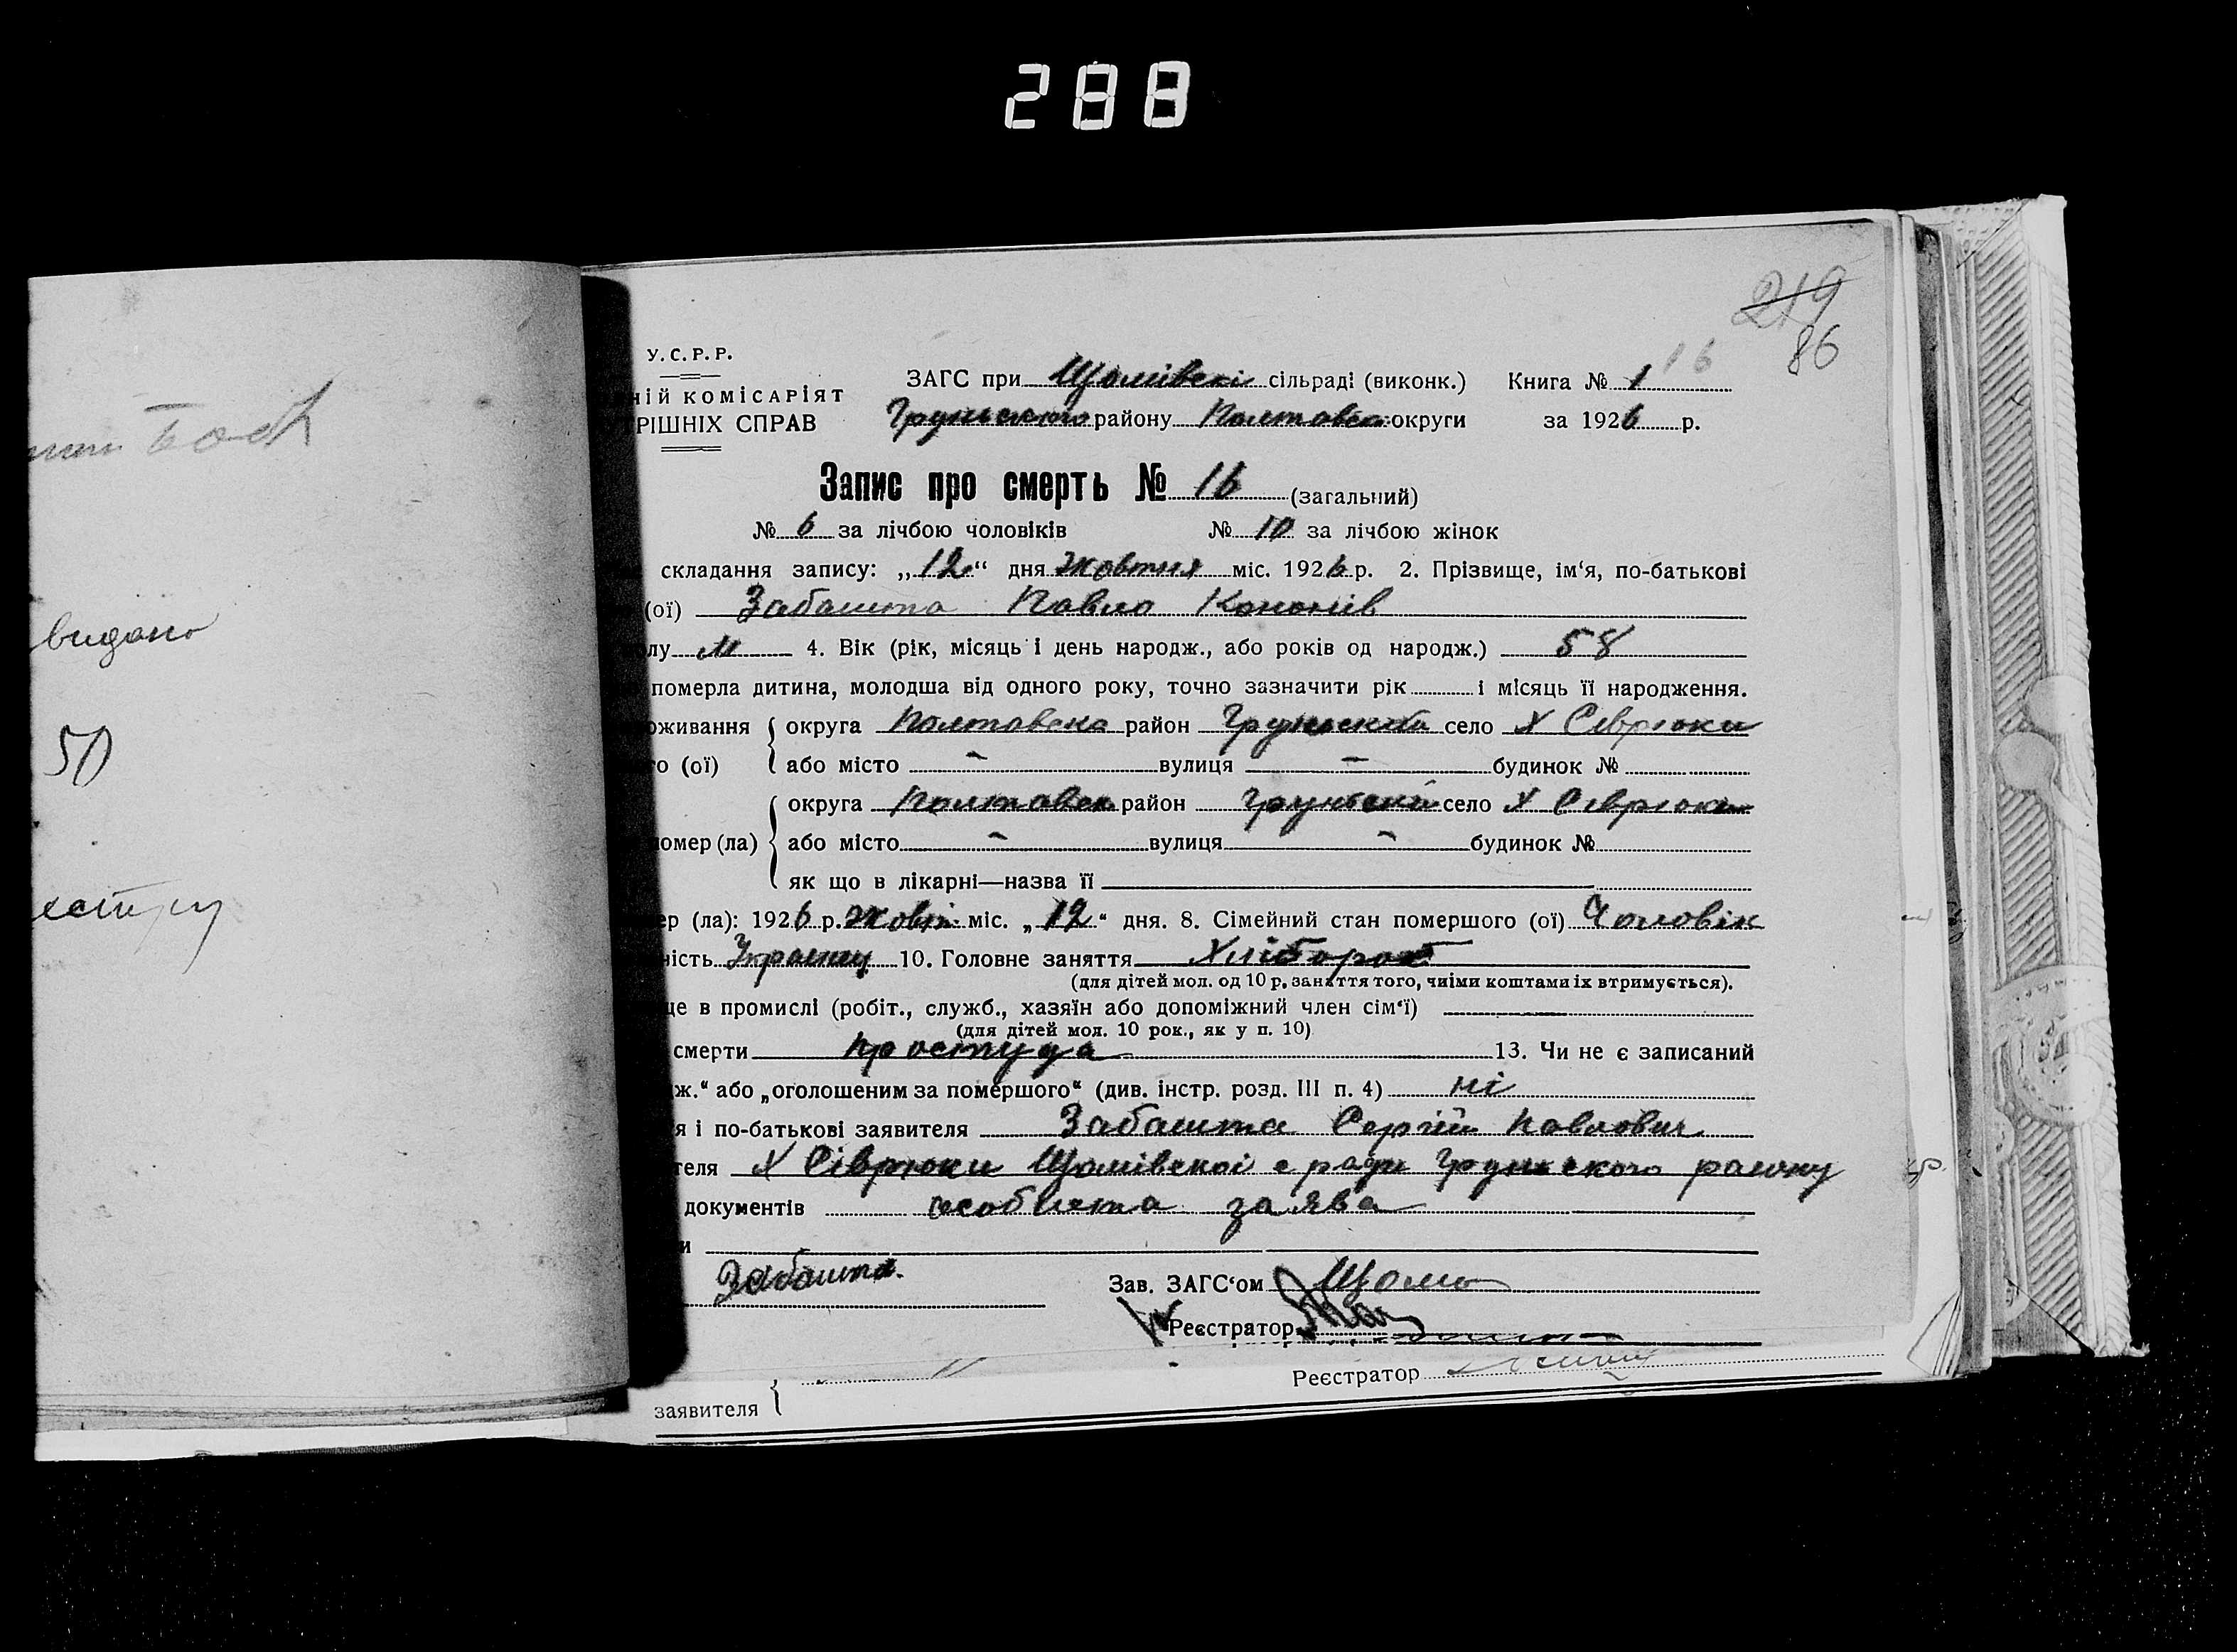 288
219
86
16
У.С.Р.Р.
ній комісаріят
рішніх справ
ЗАГС при Щомівскі сільраді (виконк.) Книга № 1
Груньского району Полтавськ округи за 1926 р.
Запис про смерть № 16 (загальний)
№ 6 за лічбою чоловіків № 10 за лічбою жінок
складання запису: „12“ дня Жовтня міс. 1926 р. 2. Прізвище, ім‘я, по-батькові
(ої) Забашта Павло Кононів
лу М 4. Вік (рік, місяць і день народж., або років од народж.) 58
померла дитина, молодша від одного року, точно зазначити рік і місяць її народження.
оживання округа Полтавска район Груньский село Х Сіврюки
о (ої) або місто — вулиця — будинок №
округа Полтавск район Груньский село Х Сіврюки
омер (ла) або місто — вулиця — будинок №
як що в лікарні—назва її
ер (ла): 1926 р. Жовт міс. „12“ дня. 8. Сімейний стан помершого (ої) Чоловік
ність Украинц 10. Головне заняття Хлібороб
(для дітей мол. од 10 р, заняття того, чиіми коштами їх втримується).
ще в промислі (робіт., служб., хазяїн або допоміжний член сім‘ї)
(для дітей мол. 10 рок., як у п. 10)
смерти простуда 13. Чи не є записаний
ж.“ або „оголошеним за помершого“ (див. інстр. розд. III п. 4) ні
я і по-батькові заявителя Забашта Сергій Павлович
теля Х Сіврюки Щомівскої с ради Груньского району
документів особиста заява
и
Забашта. Зав. ЗАГС‘ом Щомо
Реєстратор
Реєстратор
заявителя
видано
50